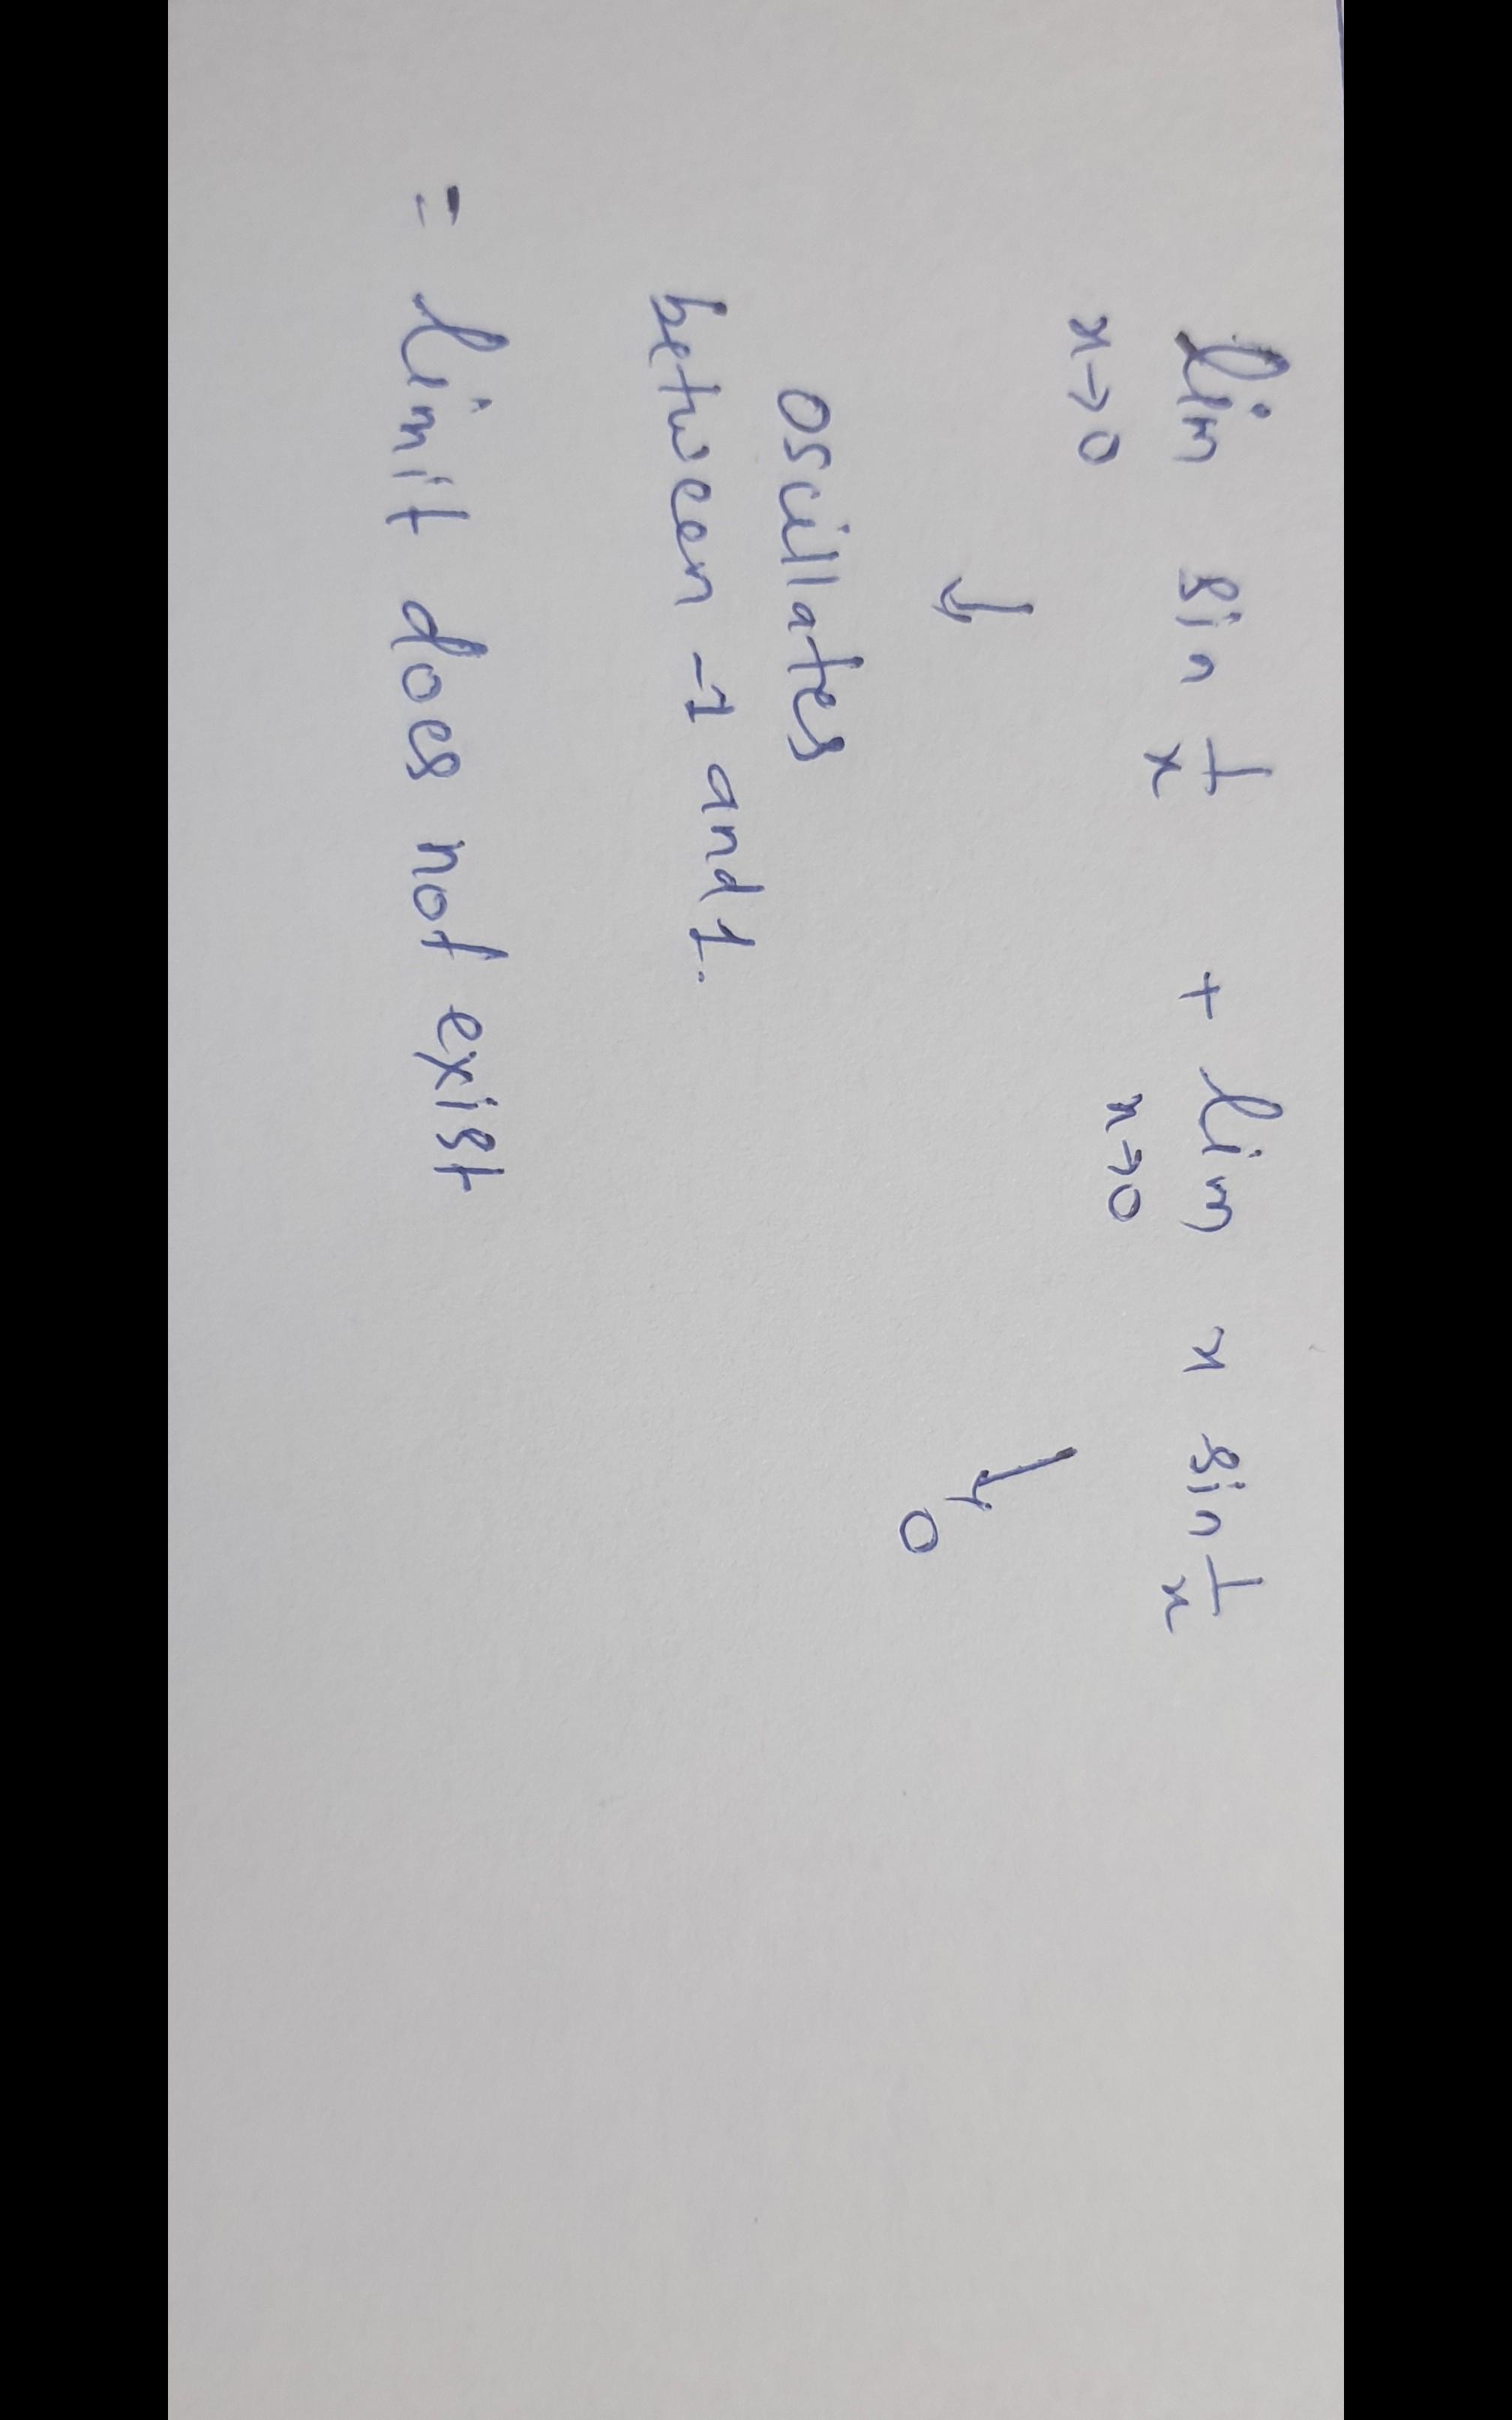 lim sin 1/x + lim x sin 1/x
x→0 x→0
↓ ↓
0
oscillates
between -1 and 1.
= limit does not exist